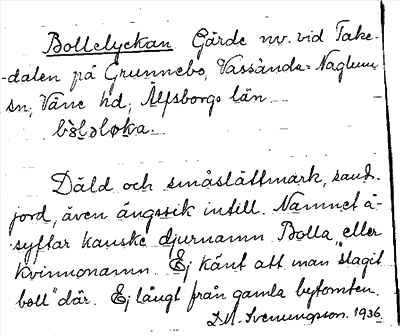 Bollelyckan Gärde nv. vid Take-
-dalen på Grunnebo, Vassända-Naglum
sn, Väne hd, Älfsborgs län
bòləløka.
Däld och småslättmark, sand-
jord, även ängssik intill. Namnet å-
syftar kanske djurnamn Bolla, eller
kvinnonamn. Ej känt att man "slagit
boll" där. Ej långt från gamla bytomten.
Svenungson. 1936